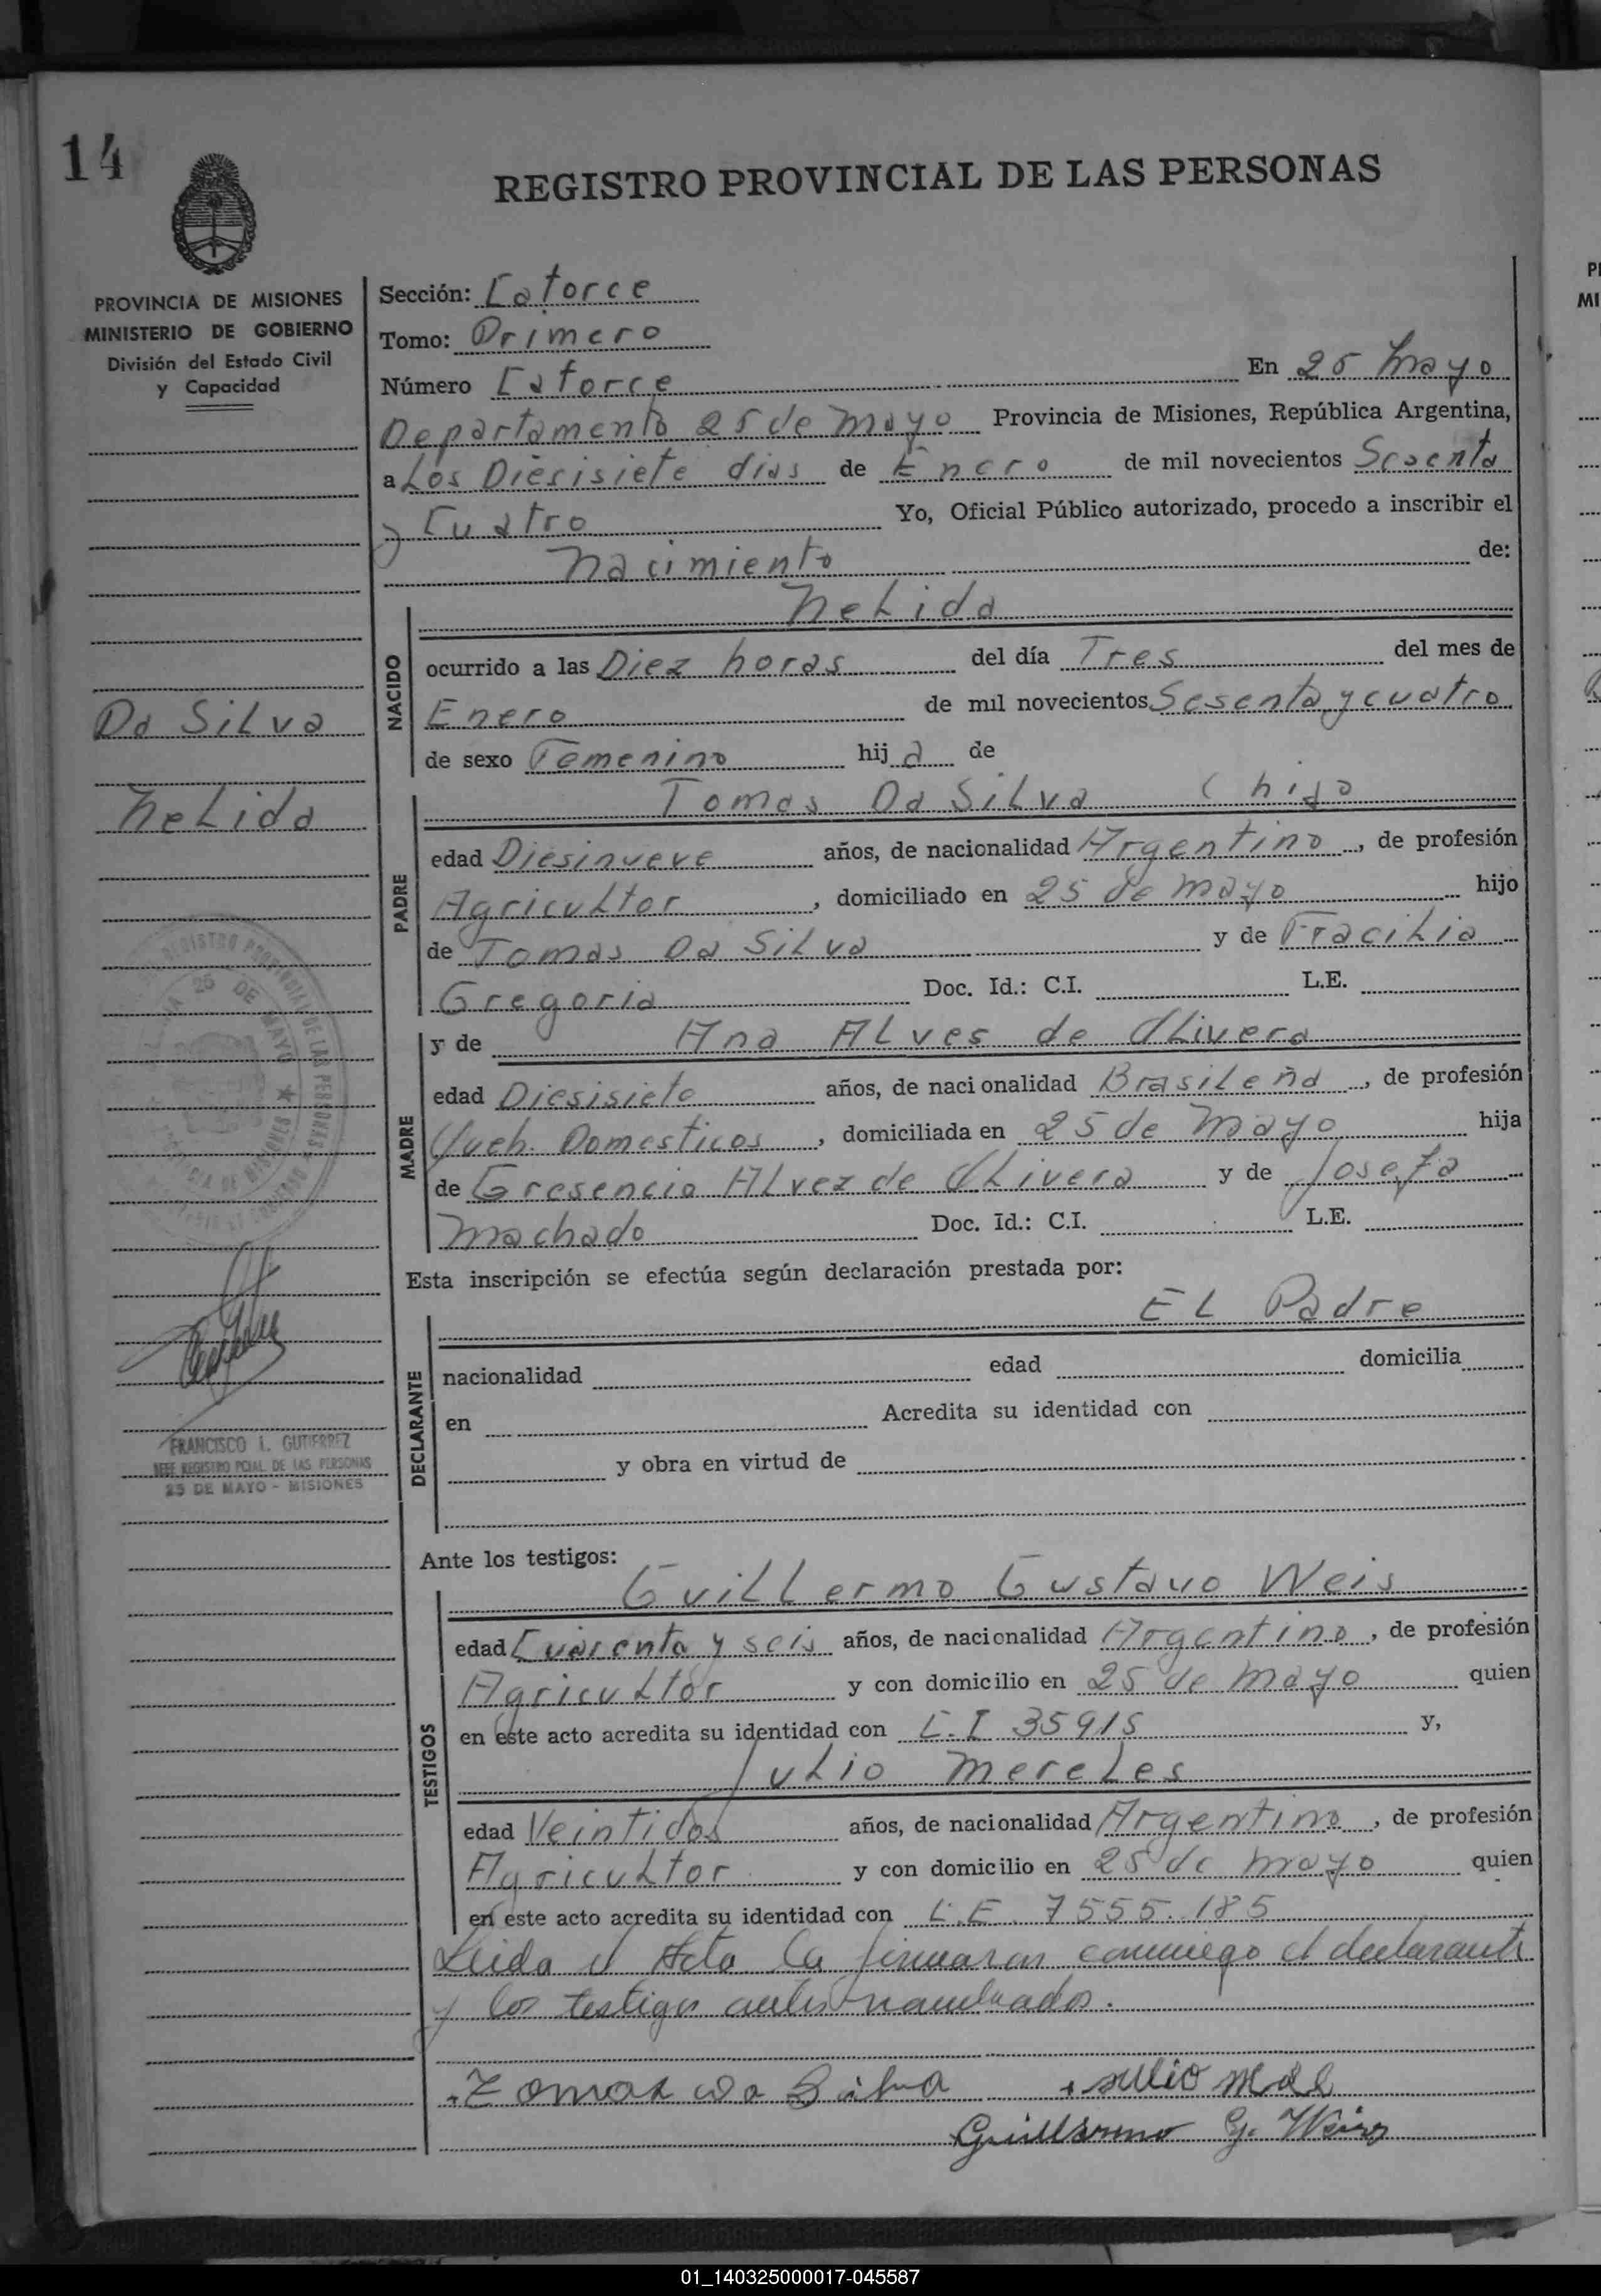 14
REGISTRO PROVINCIAL DE LAS PERSONAS
PROVINCIA DE MISIONES
MINISTERIO DE GOBIERNO
División del Estado Civil
y Capacidad
Sección: Catorce
Tomo: Primero
Número Catorce En 25 Mayo
Departamento 25 de Mayo Provincia de Misiones, República Argentina,
a Los Diecisiete dias de Enero de mil novecientos Sesenta
y Cuatro Yo, Oficial Público autorizado, procedo a inscribir el
Nacimiento de:
NeLida
NACIDO
ocurrido a las Diez horas del día Tres del mes de
Enero de mil novecientos Sesenta y cuatro
de sexo Femenino hija de
Da SiLva
NeLida
Tomas Da SiLva (hijo
PADRE
edad Diesinueve años, de nacionalidad Argentino, de profesión
AgricuLtor, domiciliado en 25 de Mayo hijo
de Tomas Da SiLva y de
Gregoria Doc. Id.: C.I. L.E.
y de Ana ALves de OLivera
MADRE
edad Diesisiete años, de nacionalidad BrasiLeña, de profesión
Domesticos, domiciliada en 25 de Mayo hija
de Gresencio ALvez de OLivera y de Josefa
Machado Doc. Id.: C.I. L.E.
Esta inscripción se efectúa según declaración prestada por:
EL Padre
DECLARANTE
nacionalidad edad domicilia
en Acredita su identidad con
y obra en virtud de
FRANCISCO I. GUTIERREZ
JEFE REGISTRO PCIAL. DE LAS PERSONAS
25 DE MAYO - MISIONES
Ante los testigos:
GuiLLermo Gustavo Weis
TESTIGOS
edad Cuarenta y seis años, de nacionalidad Argentino, de profesión
AgricuLtor y con domicilio en 25 de Mayo quien
en este acto acredita su identidad con C.I 35915 y,
JuLio MereLes
edad Veintidos años, de nacionalidad Argentino, de profesión
AgricuLtor y con domicilio en 25 de Mayo quien
en este acto acredita su identidad con L.E. 7555.185
Leida el Acta la firmaron conmigo el declarante
y los testigos antes nombrados.
Tomas da Silva Julio
Guillermo G. Weis
01_140325000017-045587